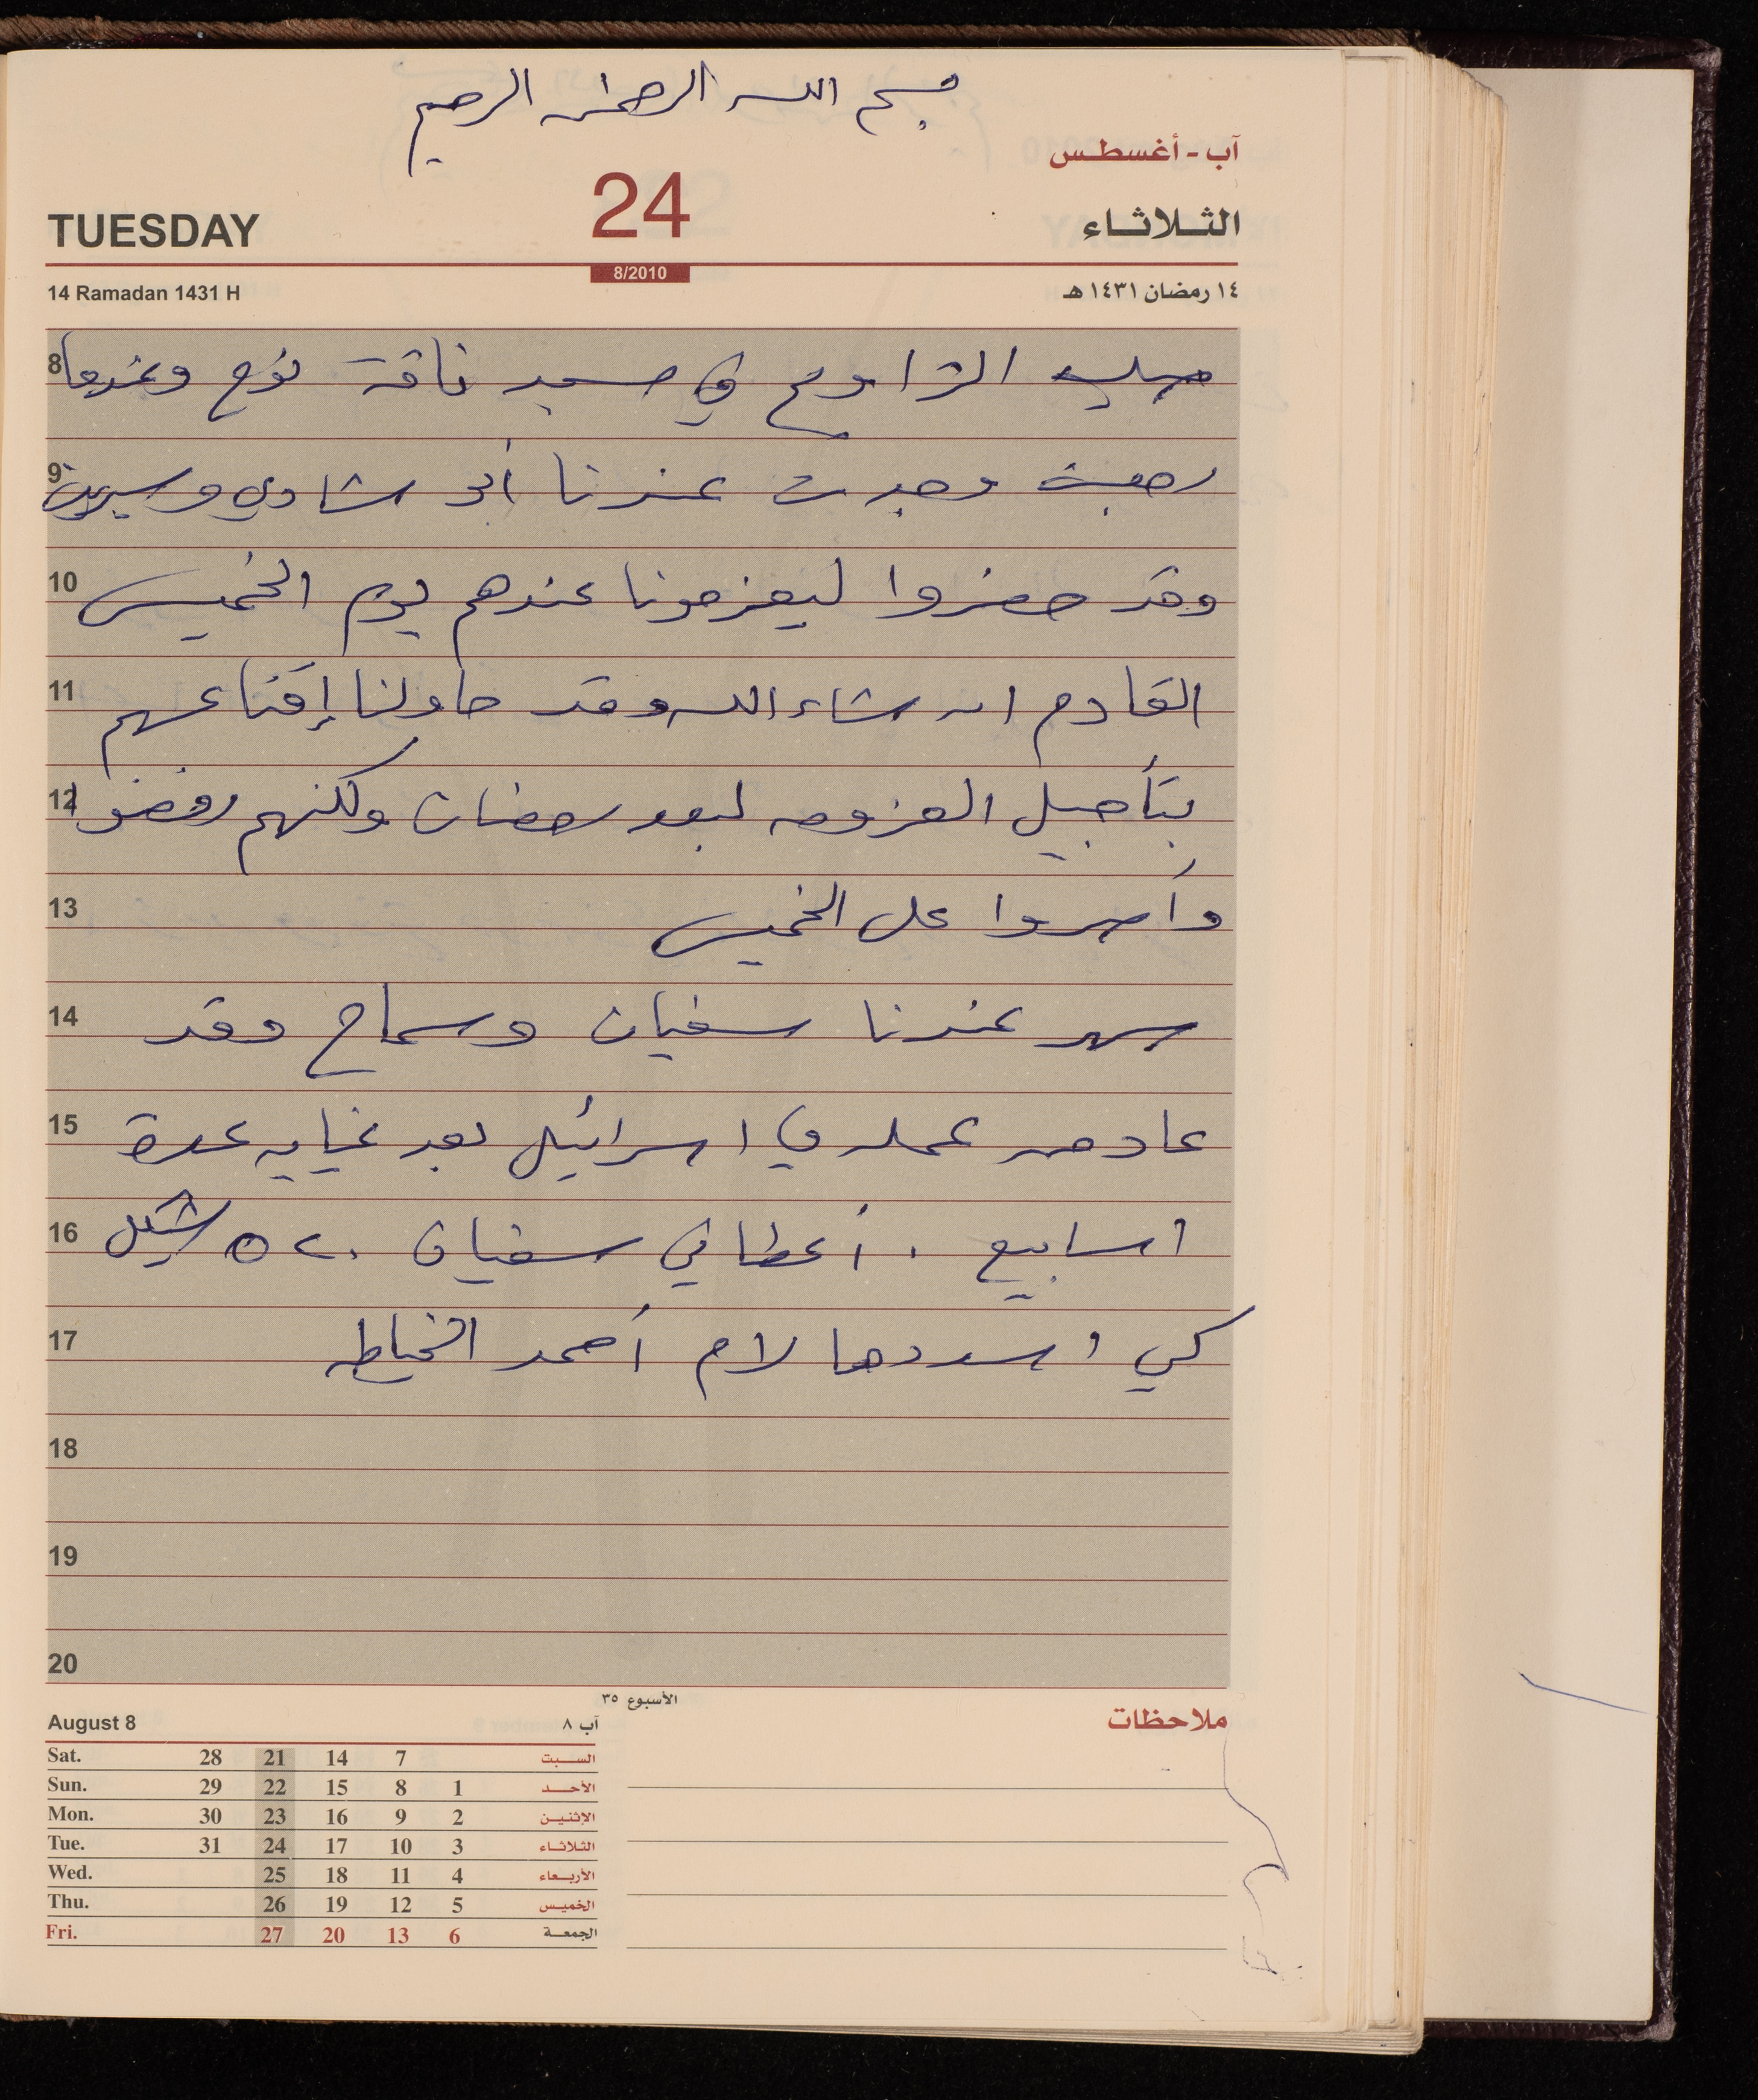 بسم الله الرحمن الرحيم
آب - أغسطس
TUESDAY 24 الثلاثاء
8/2010
14 Ramadan 1431 H ١٤ رمضان ١٤٣١ هـ
8 صليت التراويح في مسجد ناقة نوح وعندما
9 رجعت وجدت عندنا أبو شادي وسيرين
10 وقد حضروا ليعزمونا عندهم يوم الخميس
11 القادم ان شاء الله وقد حاولنا إقناعهم
12 بتأجيل العزومه لبعد رمضان ولكنهم رفضوا
13 وأصروا على الخميس
14 سهر عندنا سفيان وسماح وقد
15 عاد من عمله في اسرائيل بعد غياب عدة
16 اسابيع . أعطاني سفيان ٥٢٠ شيكل
17 كي اسددها لام أحمد الخياطه
18
19
20
الأسبوع ٣٥
August 8 آب ٨ ملاحظات
Sat. 28 21 14 7 السبت
Sun. 29 22 15 8 1 الأحد
Mon. 30 23 16 9 2 الإثنين
Tue. 31 24 17 10 3 الثلاثاء
Wed. 25 18 11 4 الأربعاء
Thu. 26 19 12 5 الخميس
Fri. 27 20 13 6 الجمعة